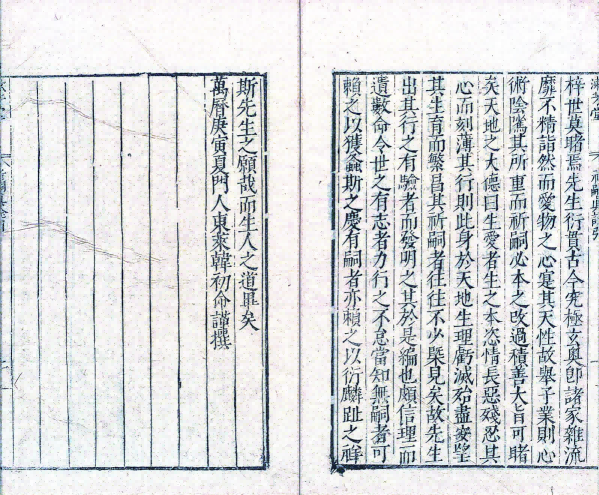 梓世莫睹焉先生衍貫古今究極玄奧即諸家雜流
靡不精詣然而愛物之心寔其天性故舉子業則心
術陰隲其所重而祈嗣必本之改過積善大旨可睹
矣天地之大德曰生愛者生之本恣情長惡殘忍其
心而刻薄其行則此身於天地生理虧滅殆盡安望
其生育而繁昌其祈嗣者往往不少槩見矣故先生
出其行之有驗者而發明之其於是編也頗信理而
遺數命令世之有志者力行之不怠當知無嗣者可
賴之以獲螽斯之慶有嗣者亦賴之以衍麟趾之祥
斯先生之願哉而生人之道畢矣
萬曆庚寅夏門人東萊韓初命謹撰